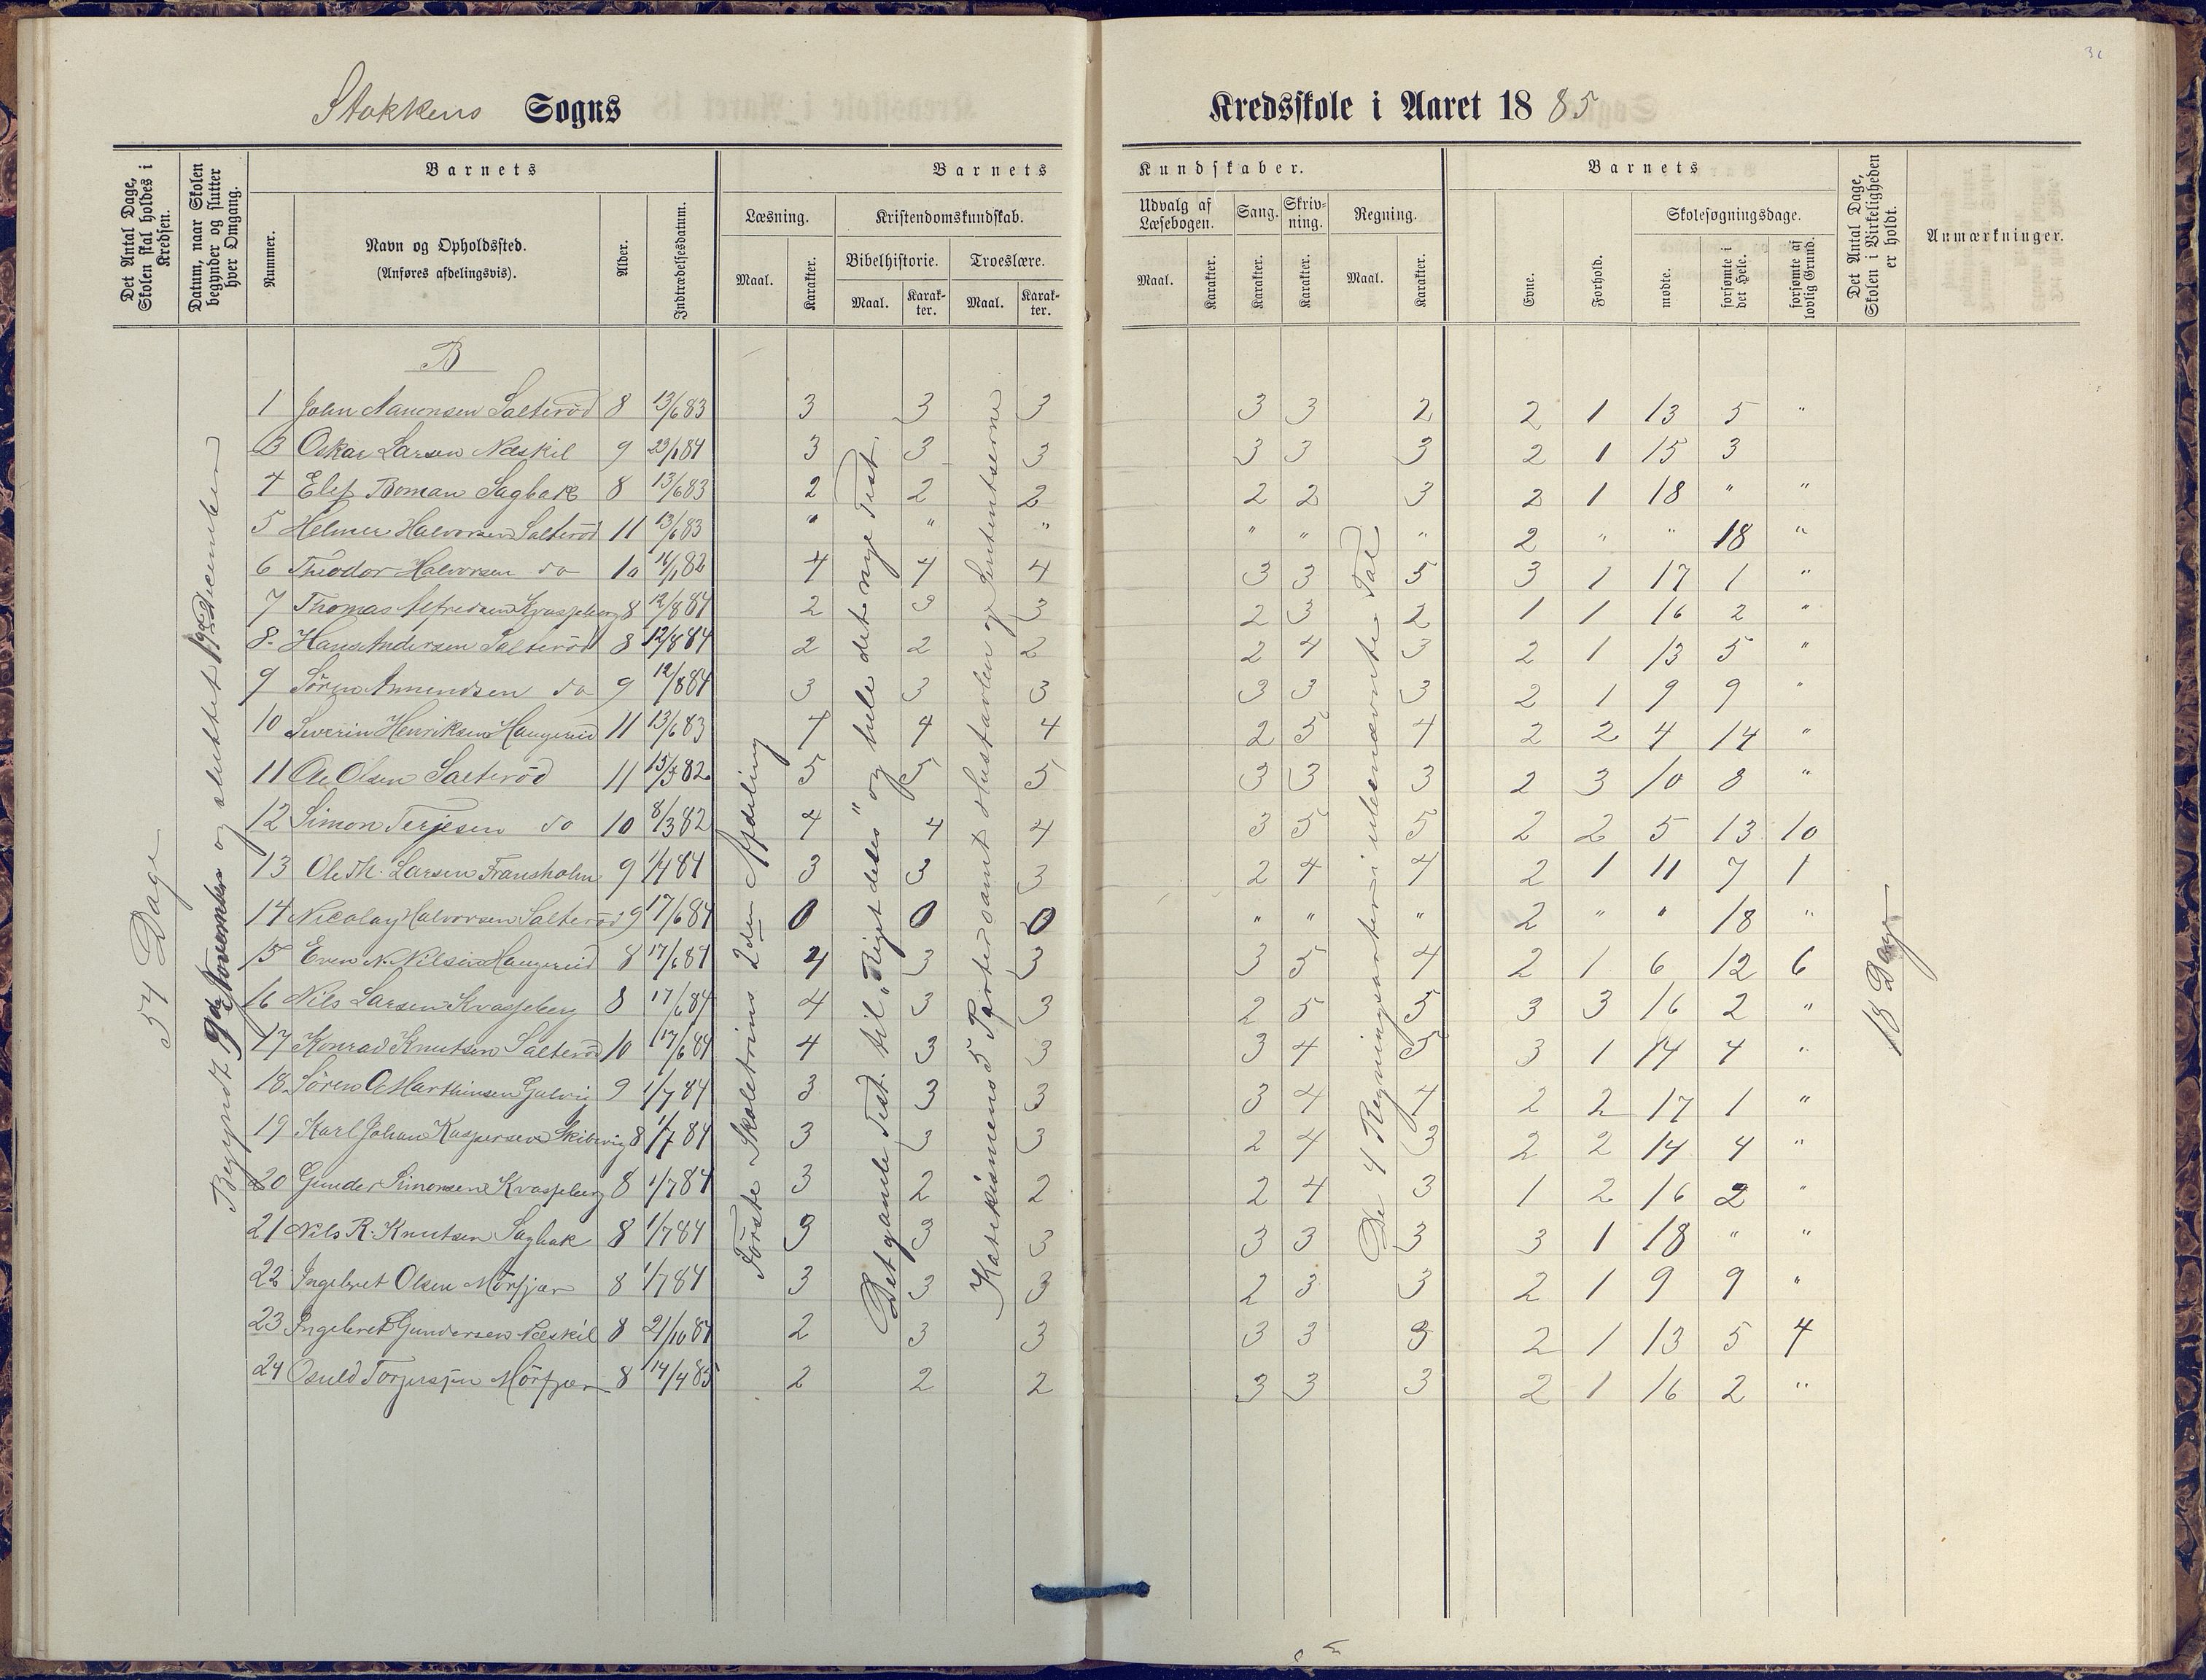 Stokkens Sogns
Kredsskole i Aaret 1885
Det Antal Dage, Skolen skal holdes i Kredsen.
Datum, naar Skolen begynder og slutter hver Omgang.
Barnets
Nummer.
Navn og Opholdssted.
(Anføres afdelingsvis).
Alder.
Indtrædelsesdatum.
Barnets
Læsning.
Kristendomskundskab.
Maal.
Karakter.
Bibelhistorie.
Troeslære.
Maal.
Karakter.
Maal.
Karakter.
Kundskaber.
Udvalg af Læsebogen.
Sang.
Skrivning.
Regning.
Maal.
Karakter.
Karakter.
Karakter.
Maal.
Karakter.
Barnets
Evne.
Forhold.
Skolesøgningsdage.
mødte.
forsømte i det Hele.
forsømte af lovlig Grund.
Det Antal Dage, Skolen i Virkeligheden er holdt.
Anmærkninger.
54 Dage
Begyndt 9de November og sluttet December
Første Skoletrins 2den Afdeling
Det gamle Test. til „Riget deles" og hele det nye Test.
Katekismens 5 Parter samt Hustavlen og Sententserne
De 4 Regningsarter i ubenævnte Tal
18 Dage
B
1 John Salterød 8 13/6 83 3 3 3 3 3 2 2 1 13 5 "
3 Oskar Larsen Næskil 9 29/1 84 3 3 3 3 3 3 2 1 15 3
4 Elef Boman Sagbak 8 13/6 83 2 2 2 2 2 3 2 1 18 " "
5 Helmer Halvorsen Salterød 11 13/6 83 " " " " " " 2 " " 18 "
6 Theodor Halvorsen do 10 16/1 82 4 4 4 3 3 5 3 1 17 1 "
7 Thomas Alfredsen Kvasjeberg 8 12/8 84 2 3 3 2 3 2 1 1 16 2 "
8 Hans Andersen Salterød 8 12/8 84 2 2 2 2 4 3 2 1 13 5 "
9 Søren Amundsen do 9 12/8 84 3 3 3 3 3 3 2 1 9 9 "
10 Severin Henriksen Haugereid 11 13/6 83 4 4 4 2 5 4 2 2 4 14 "
11 Ole Olsen Salterød 11 15/5 82 5 5 5 3 3 3 2 3 10 8 "
12 Simon Terjesen do 10 8/3 82 4 4 4 3 5 5 2 2 5 13 10
13 Ole Th. Larsen Fransholm 9 1/4 84 3 3 3 2 4 4 2 1 11 7 1
14 Nicolay Halvorsen Salterød 9 17/6 84 0 0 0 " " " 2 " " 18 "
15 Even N. Nilsen Haugereid 8 17/6 84 4 3 3 3 5 4 2 1 6 12 6
16 Nils Larsen Kvasjeberg 8 17/6 84 4 3 3 2 5 5 3 3 16 2 "
17 Konrad Knutsen Salterød 10 17/6 84 4 3 3 3 4 5 3 1 14 4 "
18 Søren O Marthinsen Gulvig 9 1/7 84 3 3 3 3 4 4 2 2 17 1 "
19 Karl Johan Kaspersen Skibsvig 8 1/7 84 3 3 3 2 4 3 2 2 14 4 "
20 Gunder Simonsen Kvasjeberg 8 1/7 84 3 2 2 2 4 3 1 2 16 2 "
21 Nils R. Knutsen Sagbak 8 1/7 84 3 3 3 3 3 3 3 1 18 " "
22 Ingebret Olsen Mørfjær 8 1/7 84 3 3 3 2 3 3 2 1 9 9 "
23 Ingebret Gundersen Næskil 8 21/10 84 2 3 3 3 3 3 2 1 13 5 4
24 Osuld Mørfjær 8 14/4 85 2 2 2 3 3 3 2 1 16 2 "